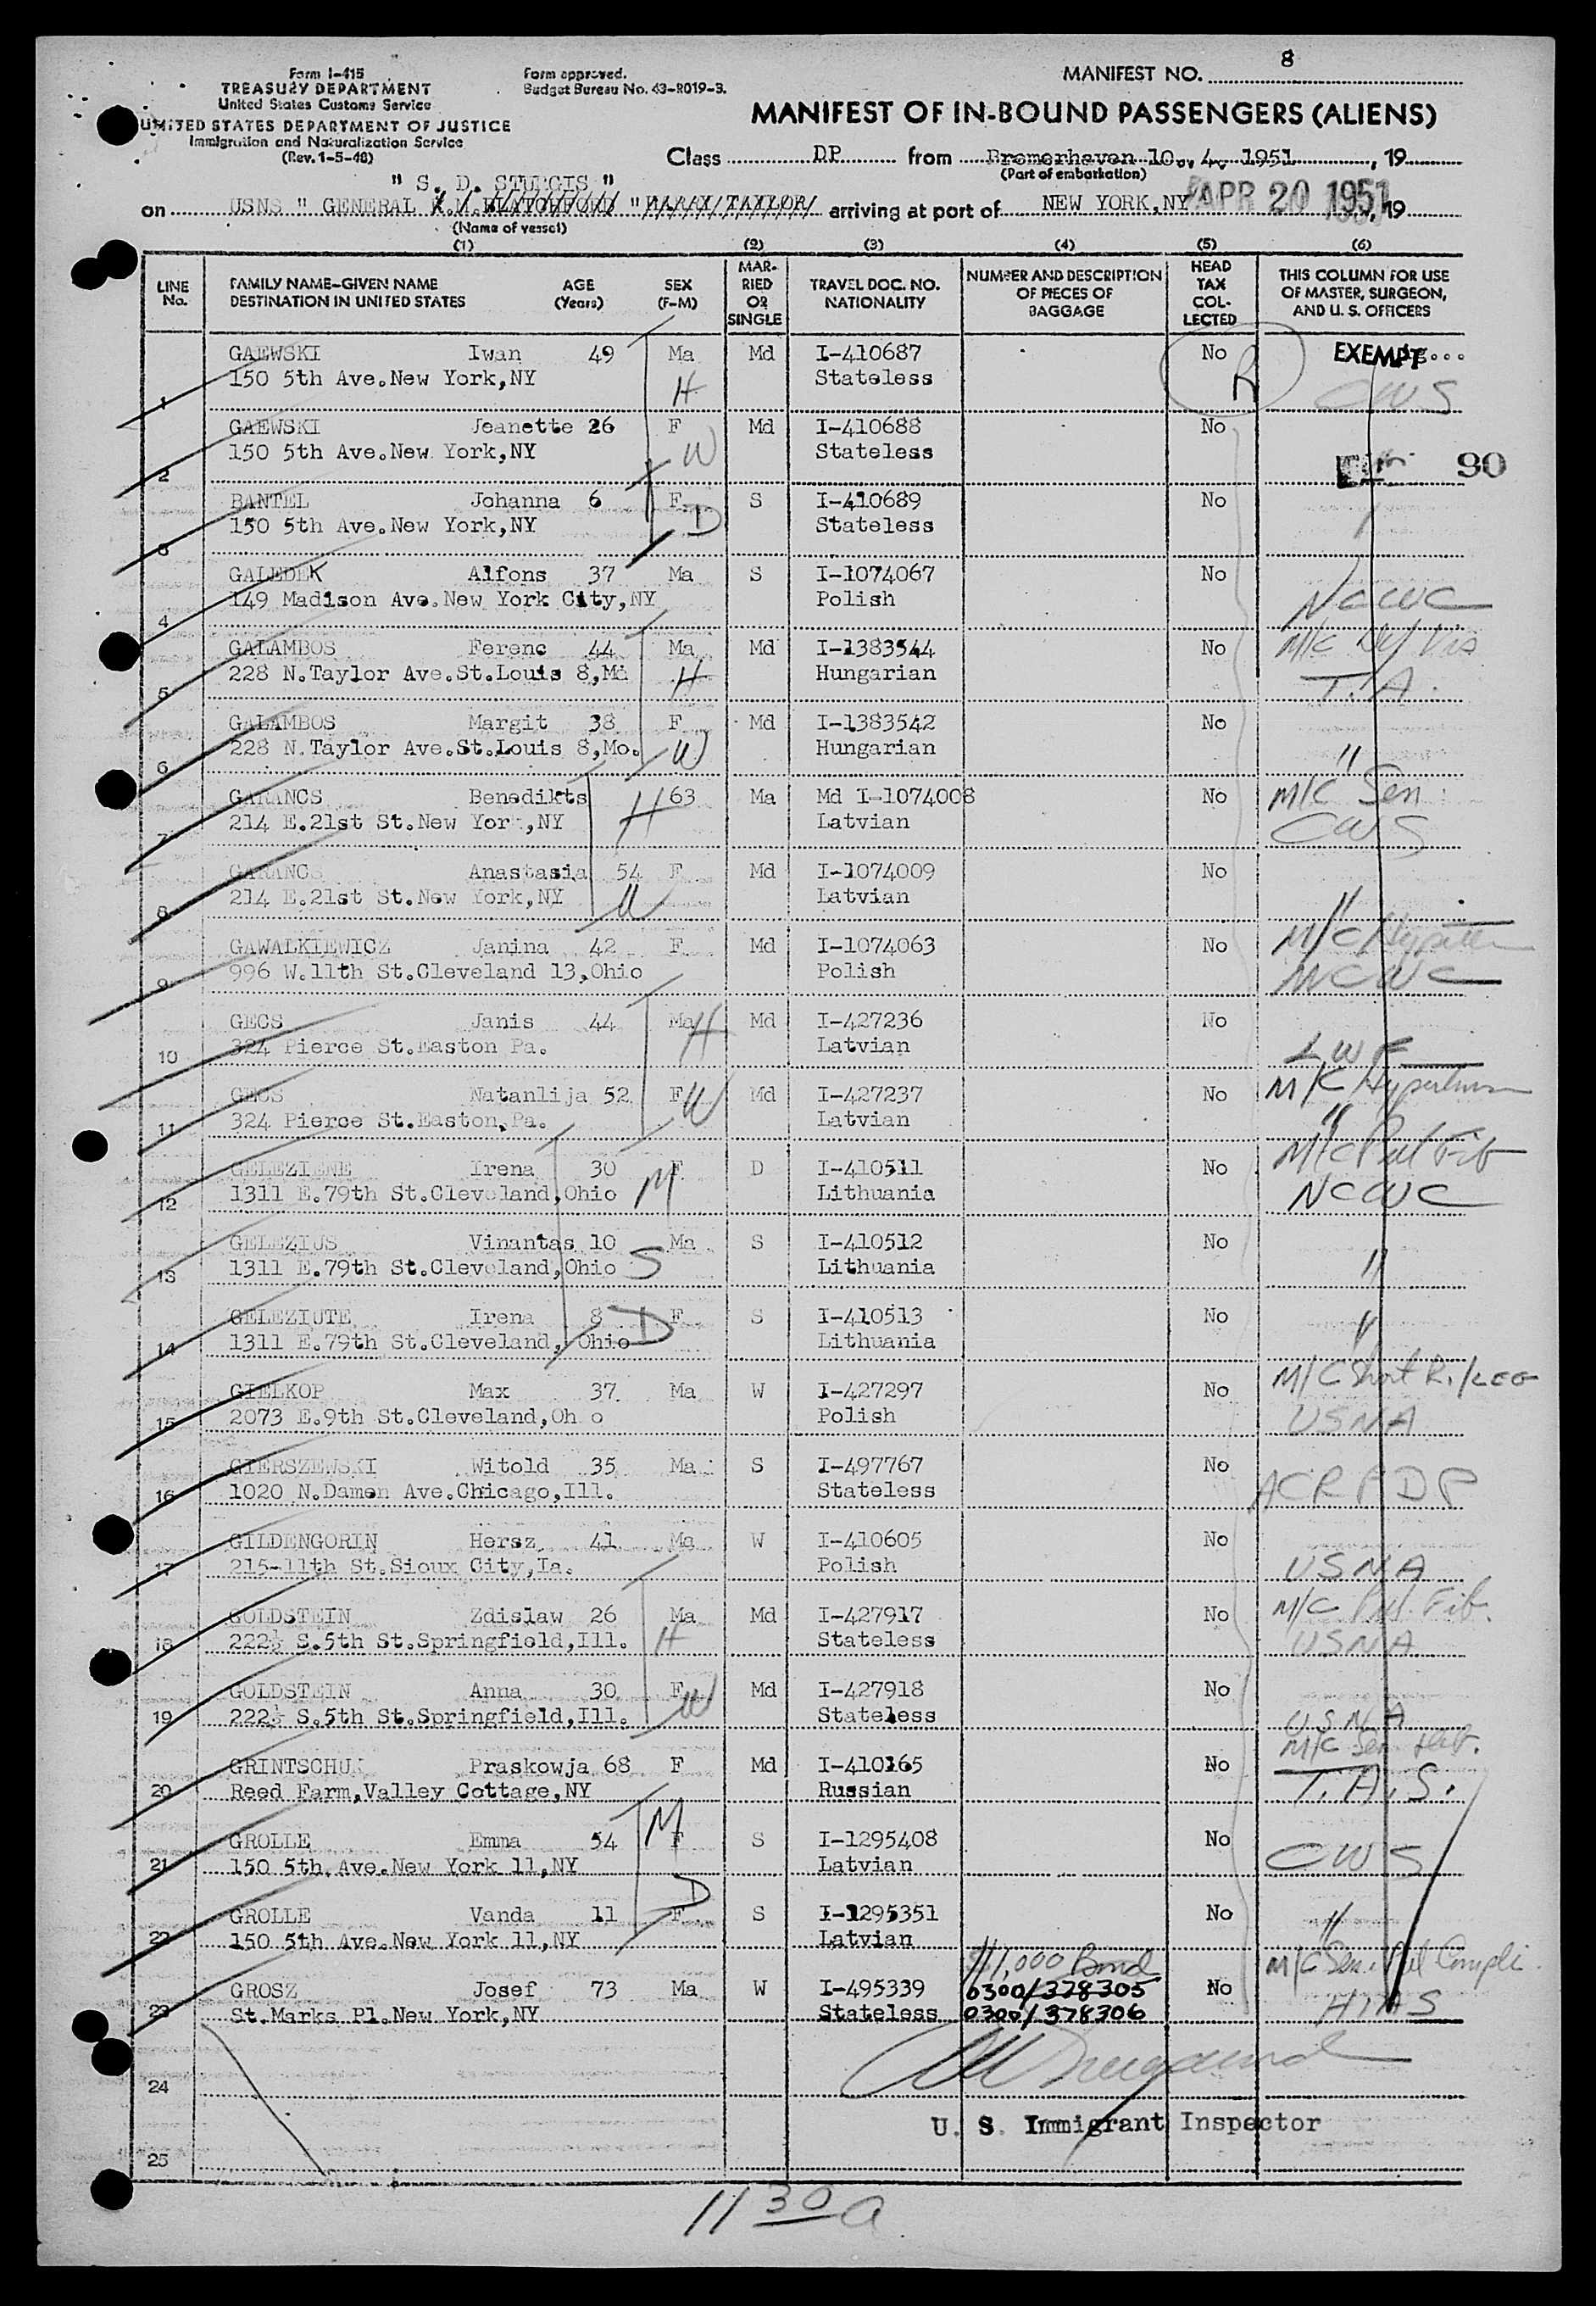 Form I-415
TREASURY DEPARTMENT
United States Customs Service
UNITED STATES DEPARTMENT OF JUSTICE
Immigration and Naturalization Service
(Rev. 1-5-48)
Form approved.
Budget Bureau No. 43-R019-3.
MANIFEST NO. 8
MANIFEST OF IN-BOUND PASSENGERS (ALIENS)
Class DP from Bremerhaven 10. 4. 1951, 19
(Port of embarkation)
" S. D. STURGIS "
on USNS " GENERAL " HARRY TAYLOR arriving at port of NEW YORK,NY APR 20 1951, 19
(Name of vessel)
(1) (2) (3) (4) (5) (6)
LINE No. FAMILY NAME-GIVEN NAME DESTINATION IN UNITED STATES AGE (Years) SEX (F-M) MARRIED OR SINGLE TRAVEL DOC. NO. NATIONALITY NUMBER AND DESCRIPTION OF PIECES OF BAGGAGE HEAD TAX COLLECTED THIS COLUMN FOR USE OF MASTER, SURGEON, AND U. S. OFFICERS
1 GAEWSKI Iwan 49 Ma Md I-410687 No EXEMPT
150 5th Ave.New York,NY H Stateless R CWS
2 GAEWSKI Jeanette 26 F Md I-410688 No
150 5th Ave.New York,NY W Stateless 90
3 BANTEL Johanna 6 F S I-410689 No
150 5th Ave.New York,NY D Stateless
4 GALEDEK Alfons 37 Ma S I-1074067 No
149 Madison Ave.New York City,NY Polish NCWC
5 GALAMBOS Ferenc 44 Ma Md I-1383544 No M/C Def Vis
228 N.Taylor Ave.St.Louis 8,Mo H Hungarian T.A.
6 GALAMBOS Margit 38 F Md I-1383542 No
228 N.Taylor Ave.St.Louis 8,Mo. W Hungarian "
7 GARANCS Benedikts H 63 Ma Md I-1074008 No M/C Sen
214 E.21st St.New Yor ,NY Latvian CWS
8 GARANCS Anastasia 54 F Md I-1074009 No
214 E.21st St.New York,NY W Latvian "
9 GAWALKIEWICZ Janina 42 F Md I-1074063 No M/C
996 W.11th St.Cleveland 13,Ohio Polish NCWC
10 GECS Janis 44 Ma H Md I-427236 No
324 Pierce St.Easton Pa. Latvian LWF
11 GECS Natanlija 52 F W Md I-427237 No M/C
324 Pierce St.Easton,Pa. Latvian "
12 GELEZIENE Irena 30 F D I-410511 No M/C Pul Fib
1311 E.79th St.Cleveland,Ohio M Lithuania NCWC
13 GELEZIUS Vinantas 10 Ma S I-410512 No
1311 E.79th St.Cleveland,Ohio S Lithuania "
14 GELEZIUTE Irena 8 D F S I-410513 No
1311 E.79th St.Cleveland, Ohio Lithuania "
15 GIELKOP Max 37 Ma W I-427297 No M/C Short R. /LEG
2073 E.9th St.Cleveland,Oh o Polish USNA
16 GIERSZEWSKI Witold 35 Ma S I-497767 No
1020 N.Damen Ave.Chicago,Ill. Stateless ACRPDP
17 GILDENGORIN Hersz 41 Ma W I-410605 No
215-11th St.Sioux City,Ia. Polish USNA
18 GOLDSTEIN Zdislaw 26 Ma Md I-427917 No M/C Pul. Fib.
222½ S.5th St.Springfield,Ill. H Stateless USNA
19 GOLDSTEIN Anna 30 F W Md I-427918 No
222½ S.5th St.Springfield,Ill. Stateless USNA
20 GRINTSCHUK Praskowja 68 F Md I-410165 No M/C Sen
Reed Farm,Valley Cottage,NY Russian T.A.S.
21 GROLLE Emma 54 M F S I-1295408 No
150 5th.Ave.New York 11,NY Latvian CWS
22 GROLLE Vanda 11 D F S I-1295351 No
150 5th Ave.New York 11,NY Latvian "
$1,000 Bond
23 GROSZ Josef 73 Ma W I-495339 0300/378305 No M/C Sen.
St.Marks Pl.New York,NY Stateless 0300/378306 HIAS
24
U. S. Immigrant Inspector
25
11 30 a